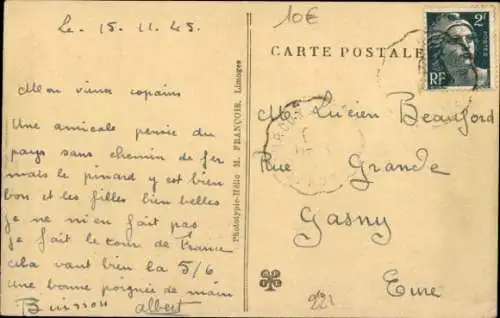 Le. 15. 11. 45.
Mon vieux copains
Une amicale pensée du
pays sans chemin de fer
mais le pinard y est bien
bon et les filles bien belles
je ne m'en fait pas
je fait le tour de France
cela vaut bien la 5/6
une bonne poignée de main
Buisson albert
Phototypie-Hélio M. FRANÇOIR, Limoges
10€
CARTE POSTALE
2F
POSTES
RF
M. Lucien Beauford
Rue Grande
Gasny
Eure
221